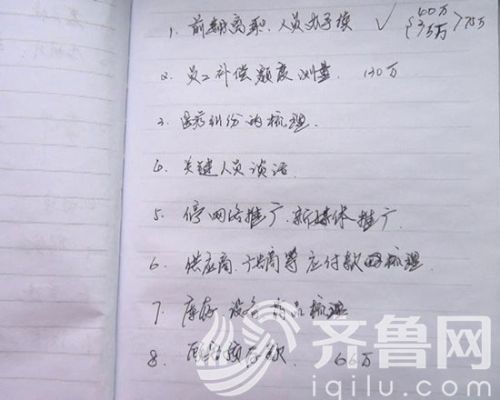 1. 前期离职、人员办手续 ✓ {40万 35万 > 75万
2. 员工补偿额度测量. 130万
3. 医疗纠纷的梳理.
4. 关键人员谈话.
5. 停网络推广、新媒体推广.
6. 供应商、广告商等应付款的梳理.
7. 库存、设备、药品梳理
8. 预存款. 66万
齐鲁网
iqilu.com